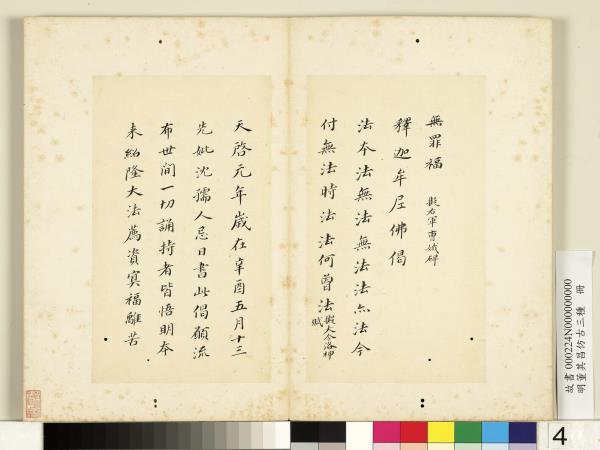 無罪福 擬右軍曹娥碑
釋迦牟尼佛偈
法本法無法無法法亦法今
付無法時法法何曾法 擬大令洛神賦
天啓元年歲在辛酉五月十三
先妣沈孺人忌日書此偈願流
布世間一切誦持者皆悟明本
來紹隆大法薦資冥福離苦
故書 000224N000000000
明董其昌仿古三種 冊
4